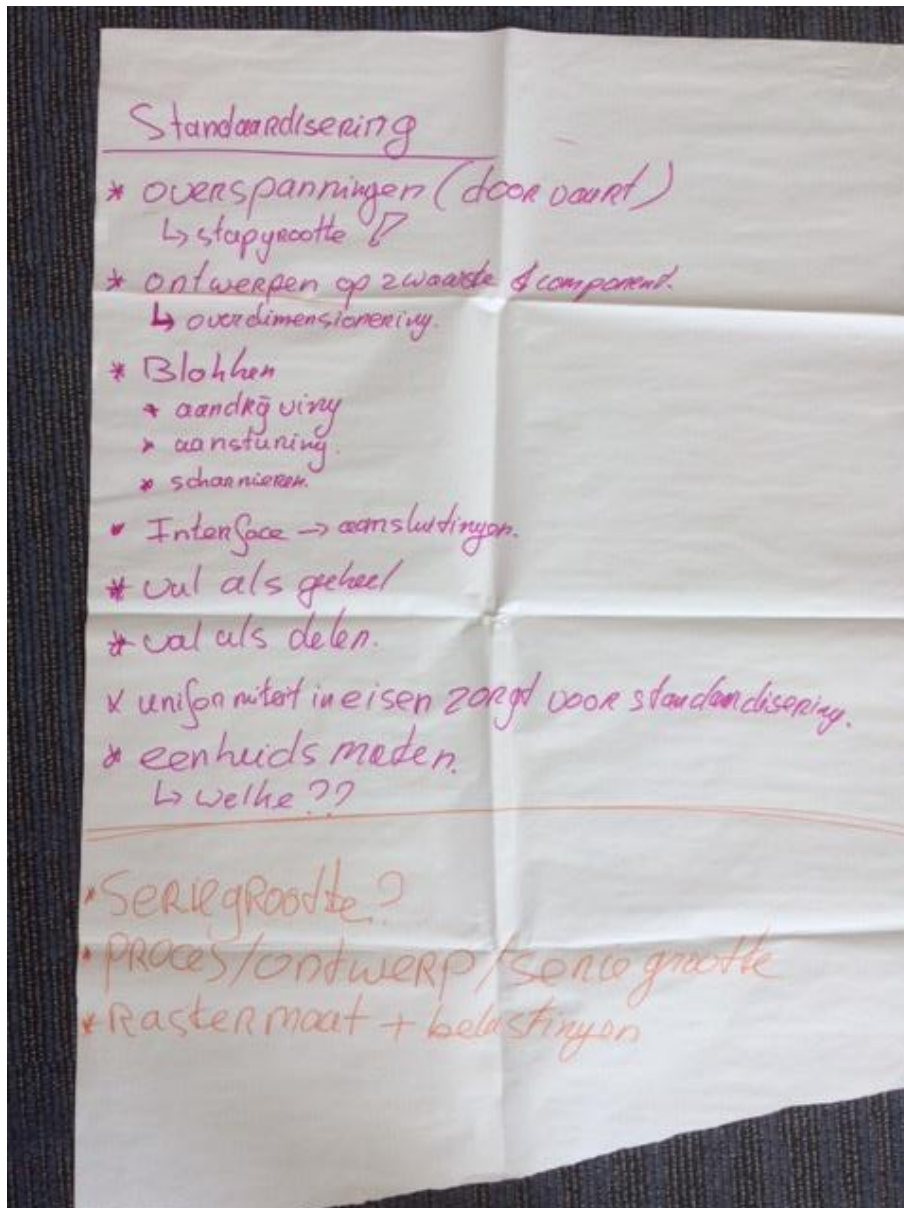 Standaardisering
* overspanningen (doorvaart)
↳ stapgrootte
* ontwerpen op zwaarste component.
↳ overdimensionering.
* Blokken
* aandrijving
* aansturing.
* scharnieren.
* Interface → aansluitingen.
* val als geheel
* val als delen.
x uniformiteit in eisen zorgt voor standaardisering.
* eenheids maten.
↳ welke ??
* Seriegrootte?
* PROCES/ontwerp/serie grootte
* Rastermaat + belastingen